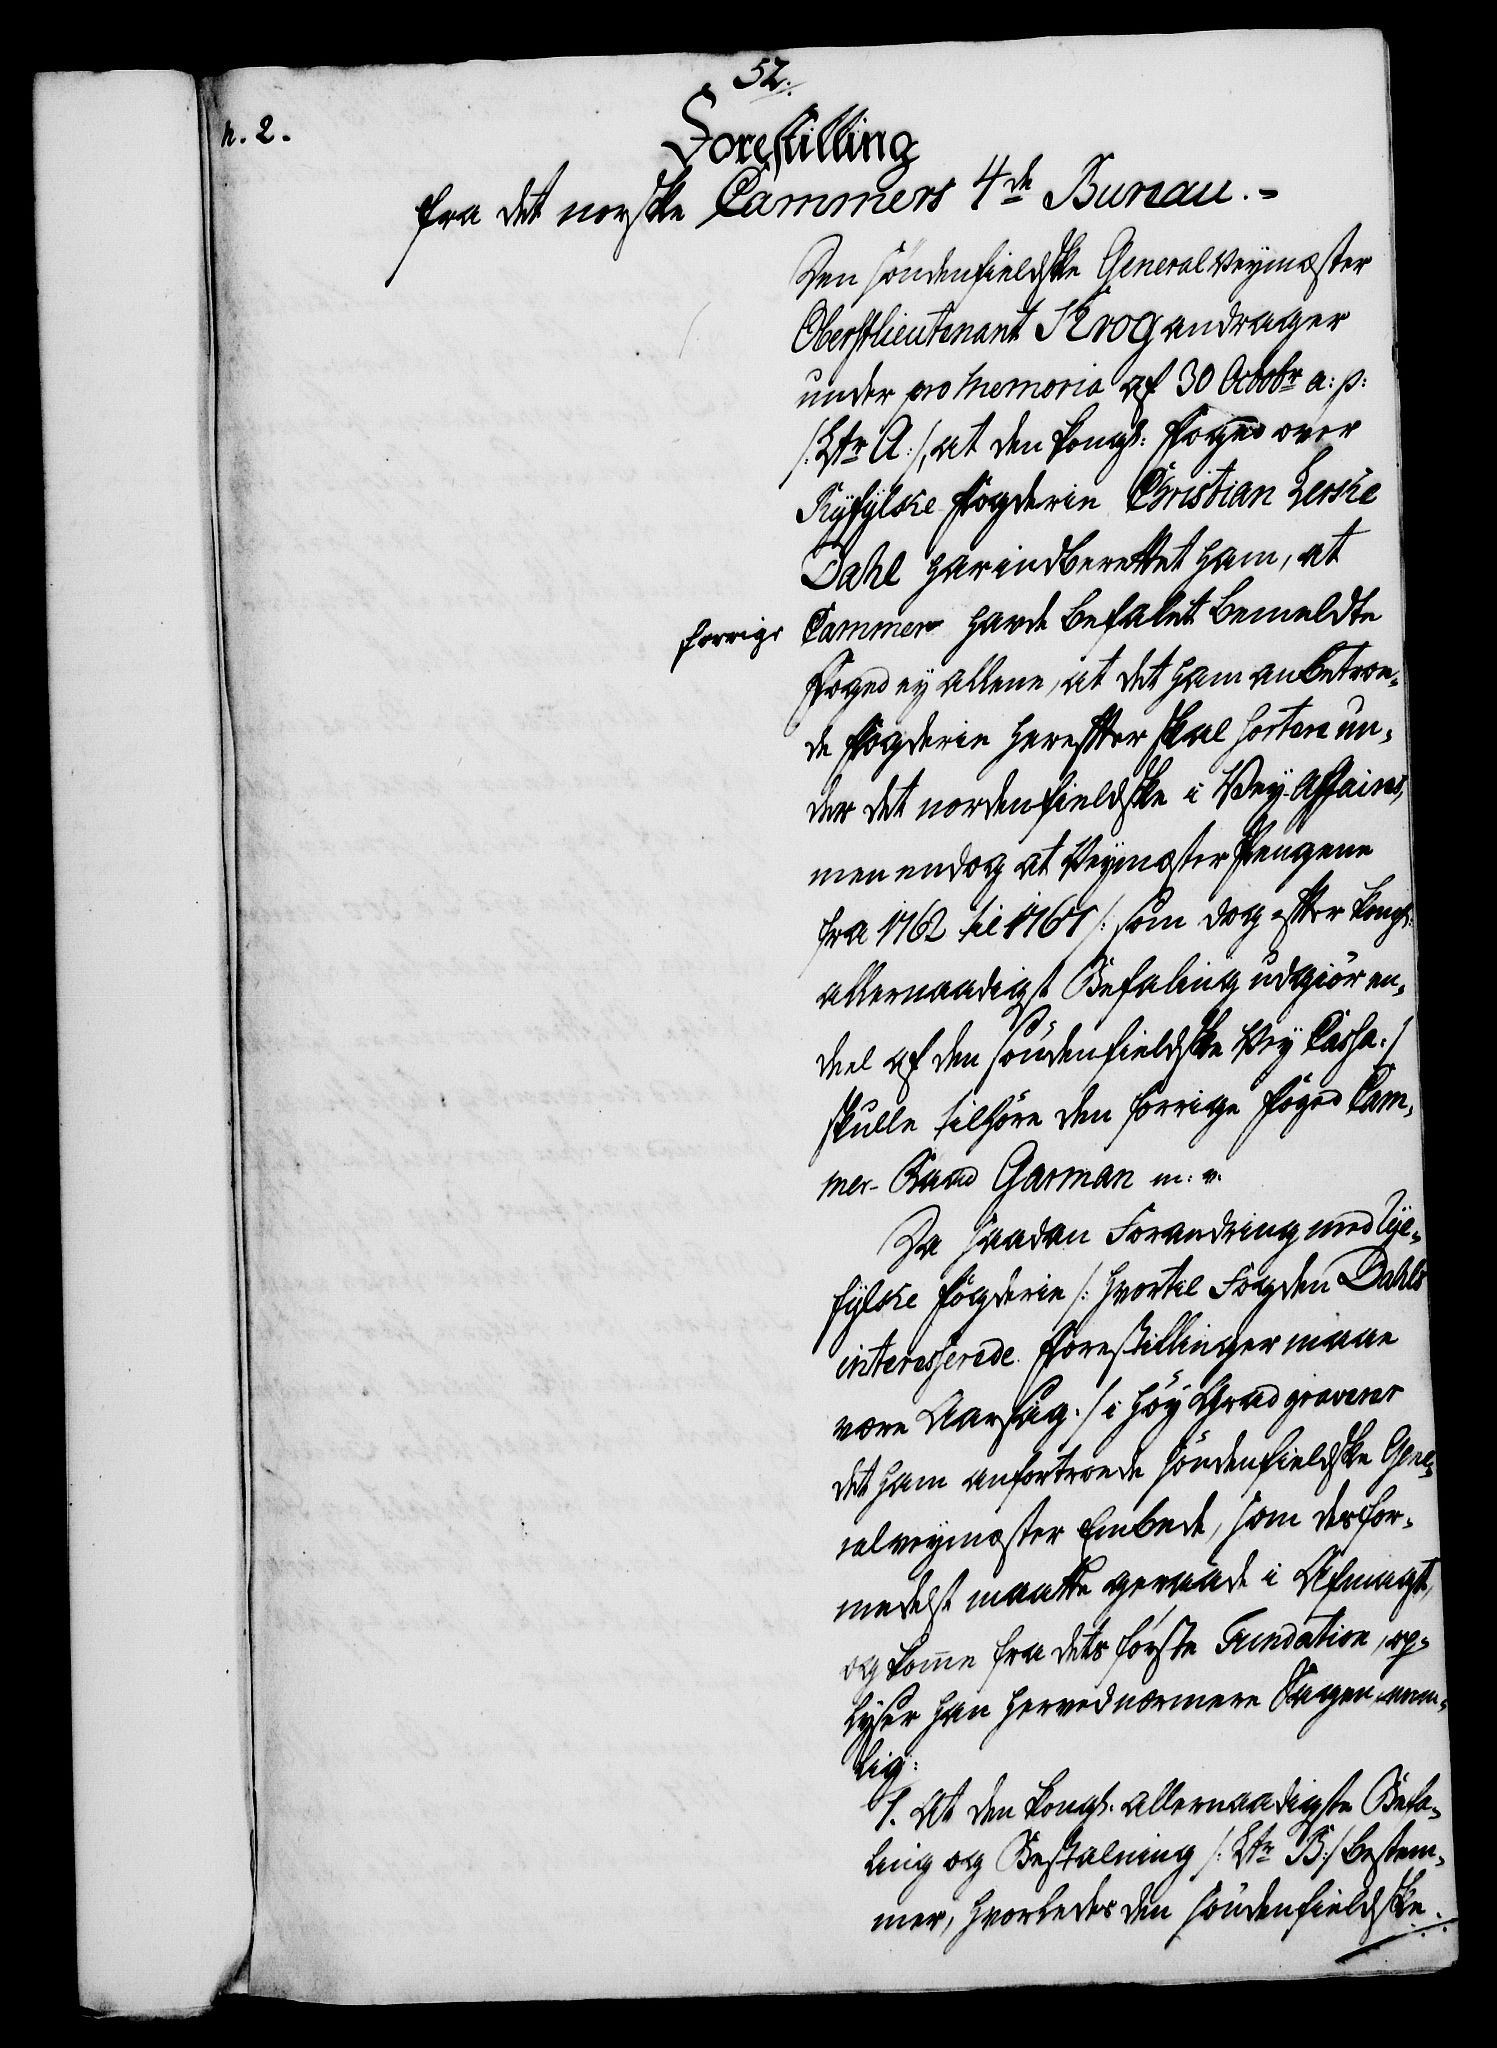 52.
n. 2.
Forestilling
fra det norske Cammers 4de Bureau.=
Den söndenfieldske General Veymester
Oberstlieutenant Krog andrager
under pro Memoria af 30 Octobr a: p:
/: Ltr A:/, at den kongl: Foged over
Ryfylke Fogderie Christian Lerche
Dahl har indberettet ham, at
forrige Cammer havde befalet bemeldte
Foged ey allene, at det ham anbetroe-
de Fogderie herefter skal sortere un-
der det nordenfieldske i Vey-Affaires,
men endog at Veymester Pengene
fra 1762 til 1767 /: som dog efter kongl:
allernaadigst Befaling udgiör en-
deel af den söndenfieldske Vey Cassa:/
skulle tilhöre den forrige Foged Cam-
mer-Raad Garman m: v.
Da saadan Forandring med Rye-
fylke Fogderie /: hvortil Fogden Dahls
interesserede Forestillinger maae
være Aarsag:/ i höy Grad graverer
det ham anfortroede söndenfieldske Gene-
ralveymester Embede, som derfor-
medelst maatte geraade i Afmagt,
og komme fra dets förste Fundation, op-
lyser han herved nærmere Sagen, nem-
lig:
1. At den kongl. allernaadigste Befa-
ling og Bestalning /: Ltr B:/ bestem-
mer, hvorledes den söndenfieldske